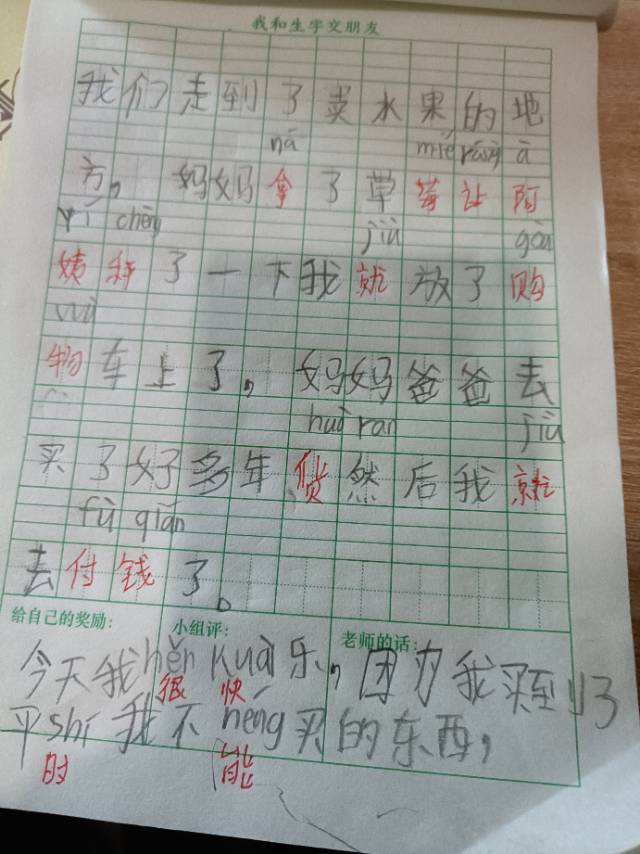 我和生字交朋友
我们走到了卖水果的地
ná méi ràng ā
方，妈妈拿了草莓让阿
yí chēng jiù gòu
姨称了一下我就放了购
wù
物车上了，妈妈爸爸去
huò ran jiù
买了好多年货然后我就
fù qián
去付钱了。
给自己的奖励： 小组评： 老师的话：
今天我hěn kuài乐，因为我买到了
很 快
平shí我不néng买的东西，
时 能